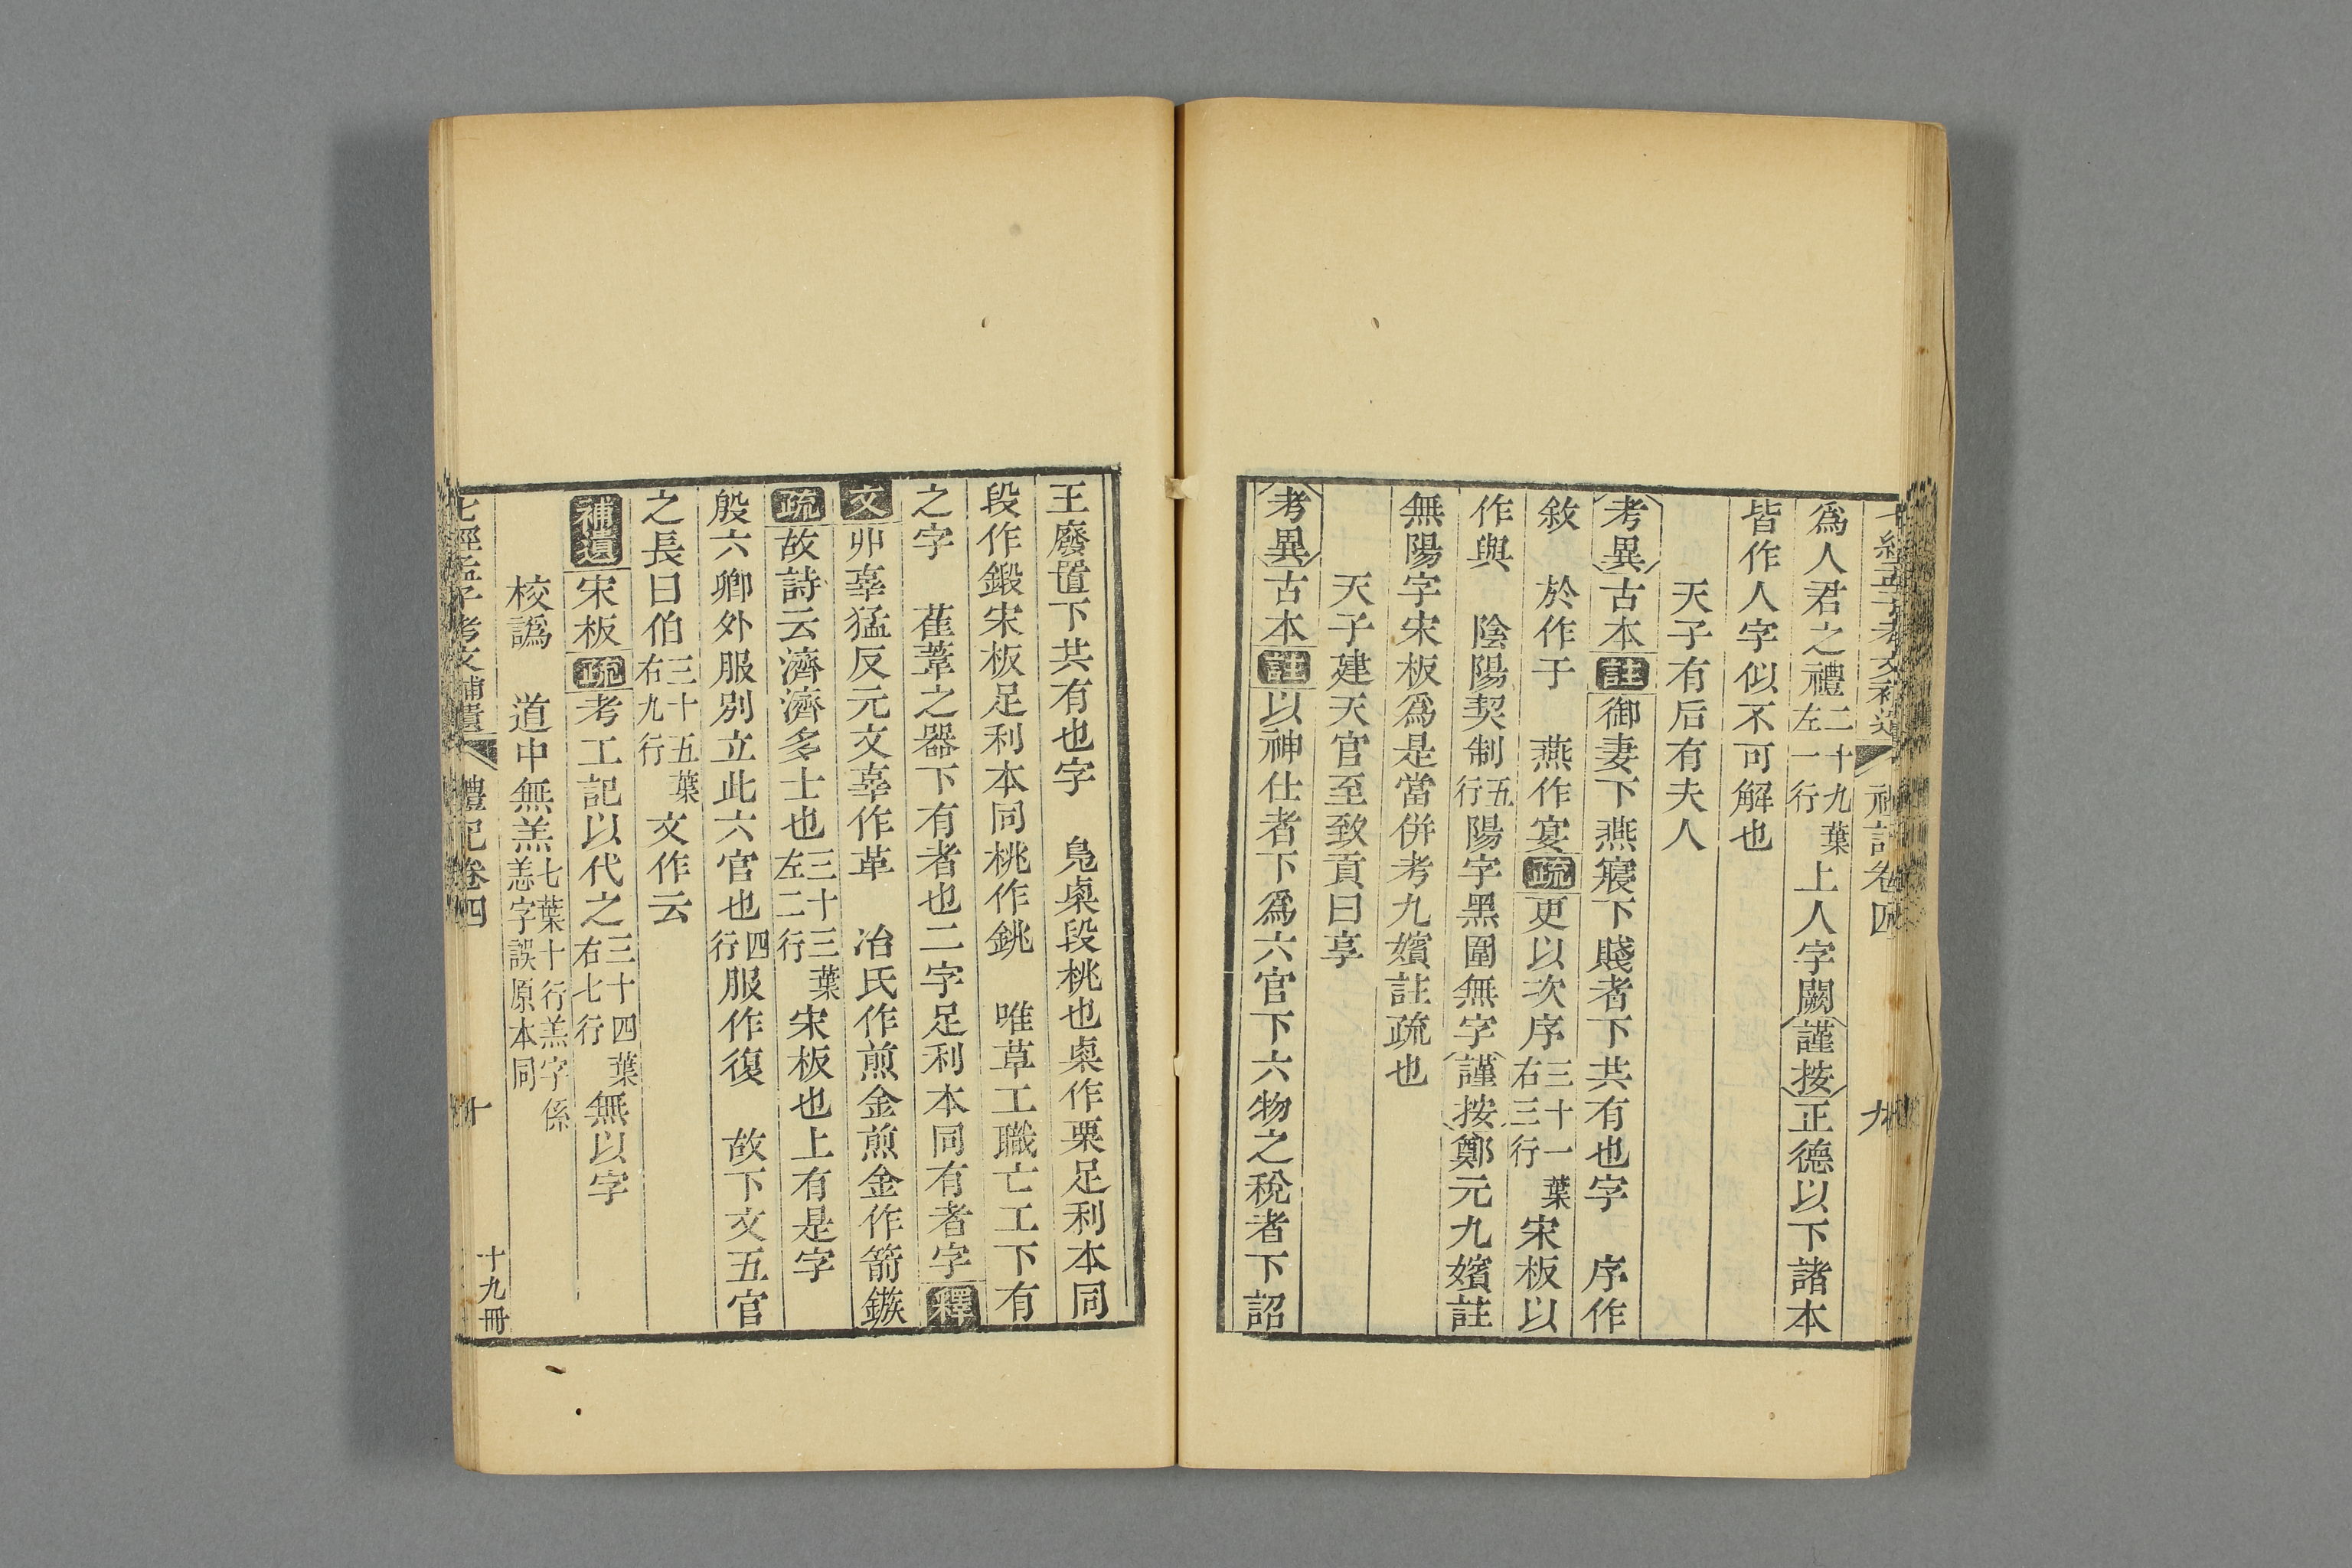 七經孟子考文補遺 禮記卷四 九
爲人君之禮二十九葉左一行上人字闕謹按正德以下諸本
皆作人字似不可解也
天子有后有夫人
考異古本註御妻下燕寢下賤者下共有也字 序作
敘 於作于 燕作宴疏更以次序三十一葉右三行宋板以
作與 陰陽契制五行陽字黑圍無字謹按鄭元九嬪註
無陽字宋板爲是當併考九嬪註疏也
天子建天官至致貢曰享
考異古本註以神仕者下爲六官下六物之稅者下詔
王廢置下共有也字 鳧㮚段桃也㮚作栗足利本同
段作鍛宋板足利本同桃作銚 唯草工職亡工下有
之字 萑葦之器下有者也二字足利本同有者字釋
文丱辜猛反元文辜作革 冶氏作煎金煎金作箭鏃
疏故詩云濟濟多士也三十三葉左二行宋板也上有是字
殷六卿外服別立此六官也四行服作復 故下文五官
之長曰伯三十五葉右九行文作云
補遺宋板疏考工記以代之三十四葉右七行無以字
校譌 道中無羔七葉十行羔字係恙字誤原本同
七經孟子考文補遺 禮記卷四 十 十九冊